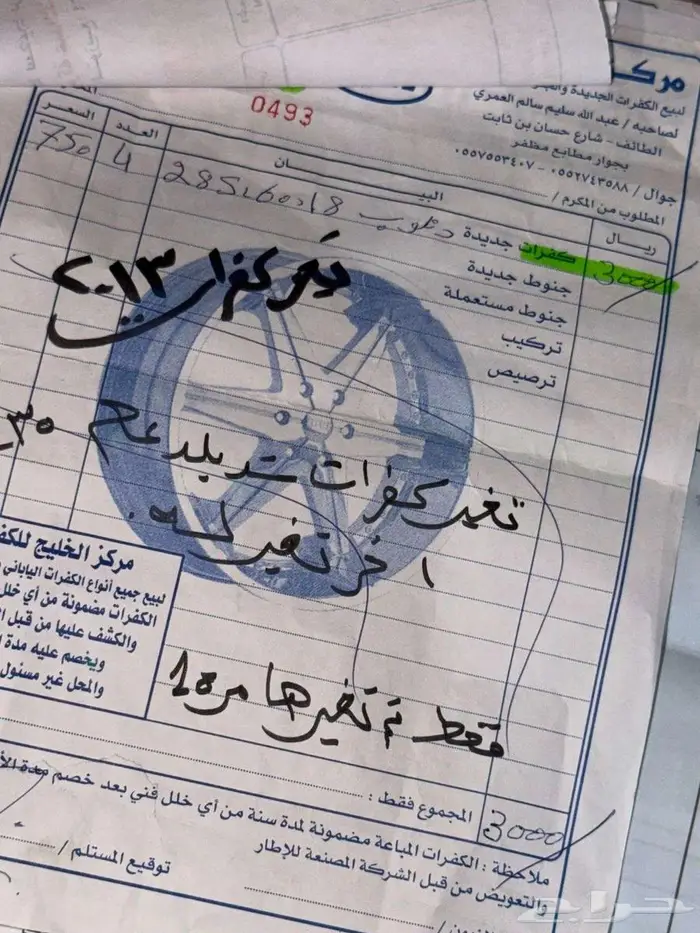 مركـ
لبيع الكفرات الجديدة والمـ
لصاحبه / عبد الله سليم سالم العمري
الطائف - شارع حسان بن ثابت
بجوار مطابع مظفر
جوال / ٠٥٥٢٧٤٣٥٨٨ - ٠٥٥٧٥٥٣٤٠٧
المطلوب من المكرم /
0493
ريـــال
البيـــــــان
العدد
السعر
3000
كفرات جديدة
285.60.18
4
750
جنوط جديدة
جنوط مستعملة
تركيب
ترصيص
تغير كفرات ٢٠١٣
تغير كفرات ستديلدعام ٢٠
اخر تغير لسه
فقط تم تغيرها مره 1
مركز الخليج للكفـ
لبيع جميع أنواع الكفرات الياباني
الكفرات مضمونة من أي خلل
والكشف عليها من قبل ا
ويخصم عليه مدة ا
والمحل غير مسئول
المجموع فقط :
3000
ملاحظة : الكفرات المباعة مضمونة لمدة سنة من أي خلل فني بعد خصم مدة الأ
والتعويض من قبل الشركة المصنعة للإطار
توقيع المستلم /
حراج